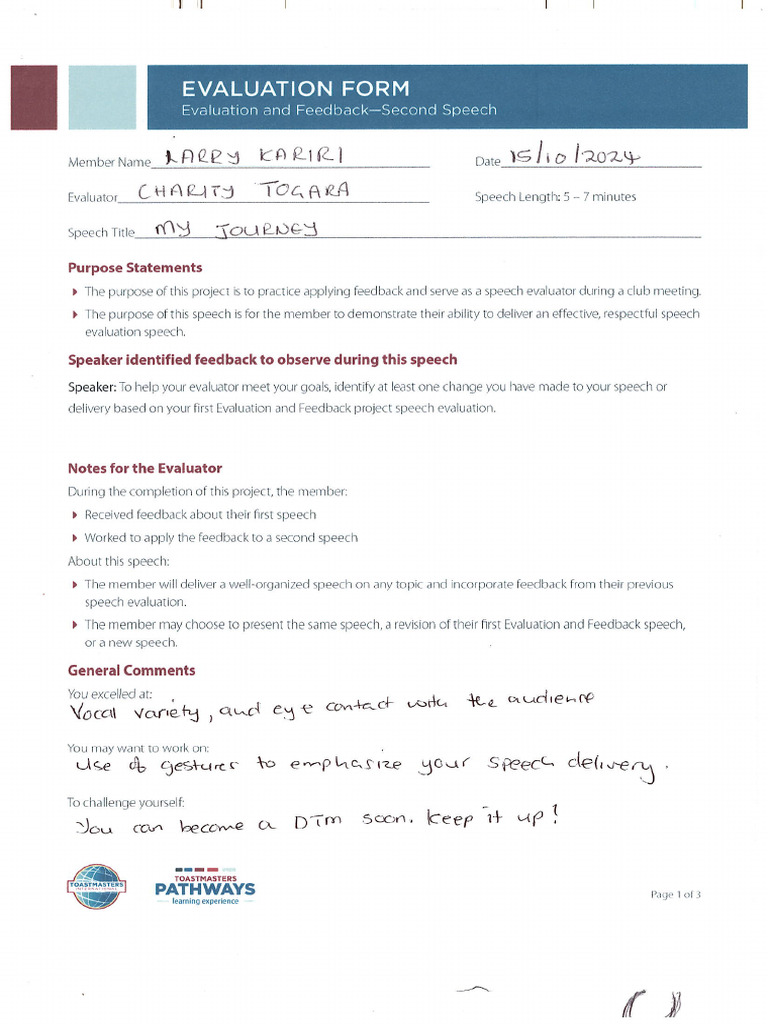 EVALUATION FORM
Evaluation and Feedback—Second Speech
Member Name LARRY KARIRI Date 15/10/2024
Evaluator CHARITY TOGARA Speech Length: 5 – 7 minutes
Speech Title MY JOURNEY
Purpose Statements
The purpose of this project is to practice applying feedback and serve as a speech evaluator during a club meeting.
The purpose of this speech is for the member to demonstrate their ability to deliver an effective, respectful speech
evaluation speech.
Speaker identified feedback to observe during this speech
Speaker: To help your evaluator meet your goals, identify at least one change you have made to your speech or
delivery based on your first Evaluation and Feedback project speech evaluation.
Notes for the Evaluator
During the completion of this project, the member:
Received feedback about their first speech
Worked to apply the feedback to a second speech
About this speech:
The member will deliver a well-organized speech on any topic and incorporate feedback from their previous
speech evaluation.
The member may choose to present the same speech, a revision of their first Evaluation and Feedback speech,
or a new speech.
General Comments
You excelled at:
Vocal variety, and eye contact with the audience
You may want to work on:
Use of gestures to emphasize your speech delivery.
To challenge yourself:
You can become a DTM soon. Keep it up!
TOASTMASTERS
INTERNATIONAL
TOASTMASTERS
PATHWAYS
learning experience
Page 1 of 3